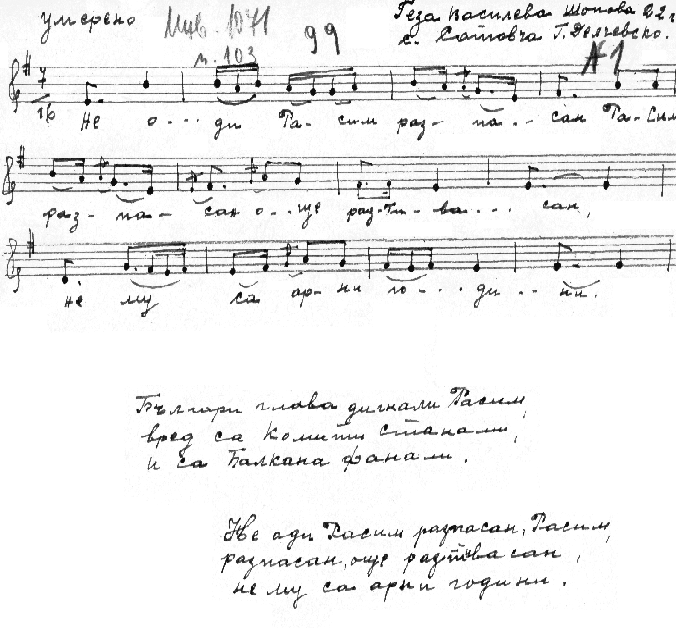 умерено
Инв. 1071
п. 103
99
Геза Василева Шопова 22 г.
с. Сатовча Г. Делчевско.
№1
7
16
Не о... ди Ра- сим раз- па... сан Ра- сим
раз- па- сан о... ще раз- ти- ва... сан,
не му са ар- ни го... ди... ни.
Българи глава дигнали Расим,
вред са комити станали,
и са Балкана фанали.
Не оди Расим разпасан, Расим,
разпасан, още разтивасан,
не му са арни години.